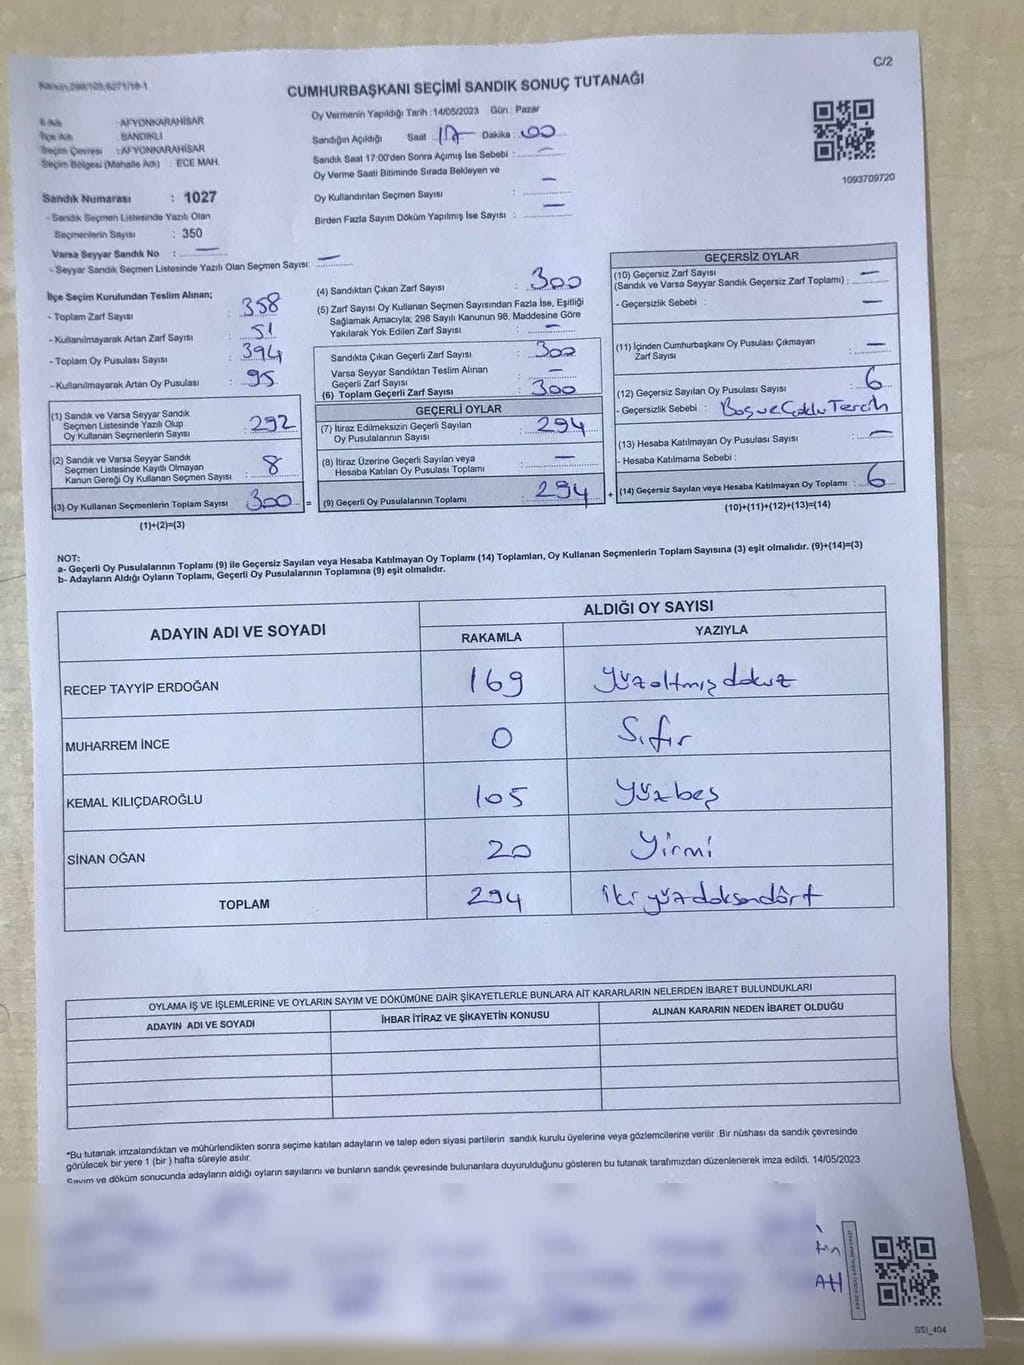 C/2
Kanun:298/105,6271/18-1
CUMHURBAŞKANI SEÇİMİ SANDIK SONUÇ TUTANAĞI
İl Adı : AFYONKARAHİSAR
İlçe Adı : SANDIKLI
Seçim Çevresi : AFYONKARAHİSAR
Seçim Bölgesi (Mahalle Adı) : ECE MAH.
Sandık Numarası : 1027
- Sandık Seçmen Listesinde Yazılı Olan
Seçmenlerin Sayısı : 350
Varsa Seyyar Sandık No : —
- Seyyar Sandık Seçmen Listesinde Yazılı Olan Seçmen Sayısı: —
Oy Vermenin Yapıldığı Tarih :14/05/2023 Gün : Pazar
Sandığın Açıldığı Saat : 17 Dakika : 00
Sandık Saat 17:00'den Sonra Açımış İse Sebebi : —
Oy Verme Saati Bitiminde Sırada Bekleyen ve
Oy Kullandırılan Seçmen Sayısı : —
Birden Fazla Sayım Döküm Yapılmış İse Sayısı : —
1093709720
İlçe Seçim Kurulundan Teslim Alınan;
- Toplam Zarf Sayısı : 358
- Kullanılmayarak Artan Zarf Sayısı : 51
- Toplam Oy Pusulası Sayısı : 394
- Kullanılmayarak Artan Oy Pusulası : 95
(1) Sandık ve Varsa Seyyar Sandık
Seçmen Listesinde Yazılı Olup
Oy Kullanan Seçmenlerin Sayısı : 292
(2) Sandık ve Varsa Seyyar Sandık
Seçmen Listesinde Kayıtlı Olmayan
Kanun Gereği Oy Kullanan Seçmen Sayısı : 8
(3) Oy Kullanan Seçmenlerin Toplam Sayısı : 300 =
(1)+(2)=(3)
(4) Sandıktan Çıkan Zarf Sayısı : 300
(5) Zarf Sayısı Oy Kullanan Seçmen Sayısından Fazla İse, Eşitliği
Sağlamak Amacıyla; 298 Sayılı Kanunun 98. Maddesine Göre
Yakılarak Yok Edilen Zarf Sayısı : —
Sandıkta Çıkan Geçerli Zarf Sayısı : 300
Varsa Seyyar Sandıktan Teslim Alınan
Geçerli Zarf Sayısı : —
(6) Toplam Geçerli Zarf Sayısı : 300
GEÇERLİ OYLAR
(7) İtiraz Edilmeksizin Geçerli Sayılan
Oy Pusulalarının Sayısı : 294
(8) İtiraz Üzerine Geçerli Sayılan veya
Hesaba Katılan Oy Pusulası Toplamı : —
(9) Geçerli Oy Pusulalarının Toplamı : 294 +
GEÇERSİZ OYLAR
(10) Geçersiz Zarf Sayısı
(Sandık ve Varsa Seyyar Sandık Geçersiz Zarf Toplamı) : —
- Geçersizlik Sebebi : —
(11) İçinden Cumhurbaşkanı Oy Pusulası Çıkmayan
Zarf Sayısı : —
(12) Geçersiz Sayılan Oy Pusulası Sayısı : 6
- Geçersizlik Sebebi : Boş ve Çoklu Tercih
(13) Hesaba Katılmayan Oy Pusulası Sayısı : —
- Hesaba Katılmama Sebebi :
(14) Geçersiz Sayılan veya Hesaba Katılmayan Oy Toplamı : 6
(10)+(11)+(12)+(13)=(14)
NOT:
a- Geçerli Oy Pusulalarının Toplamı (9) ile Geçersiz Sayılan veya Hesaba Katılmayan Oy Toplamı (14) Toplamları, Oy Kullanan Seçmenlerin Toplam Sayısına (3) eşit olmalıdır. (9)+(14)=(3)
b- Adayların Aldığı Oyların Toplamı, Geçerli Oy Pusulalarının Toplamına (9) eşit olmalıdır.
ADAYIN ADI VE SOYADI
ALDIĞI OY SAYISI
RAKAMLA YAZIYLA
RECEP TAYYİP ERDOĞAN 169 Yüzaltmışdokuz
MUHARREM İNCE 0 Sıfır
KEMAL KILIÇDAROĞLU 105 Yüzbeş
SİNAN OĞAN 20 Yirmi
TOPLAM 294 ikiyüzdoksandört
OYLAMA İŞ VE İŞLEMLERİNE VE OYLARIN SAYIM VE DÖKÜMÜNE DAİR ŞİKAYETLERLE BUNLARA AİT KARARLARIN NELERDEN İBARET BULUNDUKLARI
ADAYIN ADI VE SOYADI İHBAR İTİRAZ VE ŞİKAYETİN KONUSU ALINAN KARARIN NEDEN İBARET OLDUĞU
*Bu tutanak imzalandıktan ve mühürlendikten sonra seçime katılan adayların ve talep eden siyasi partilerin sandık kurulu üyelerine veya gözlemcilerine verilir .Bir nüshası da sandık çevresinde
görülecek bir yere 1 (bir ) hafta süreyle asılır.
Sayım ve döküm sonucunda adayların aldığı oyların sayılarını ve bunların sandık çevresinde bulunanlara duyurulduğunu gösteren bu tutanak tarafımızdan düzenlenerek imza edildi. 14/05/2023
SSI_404